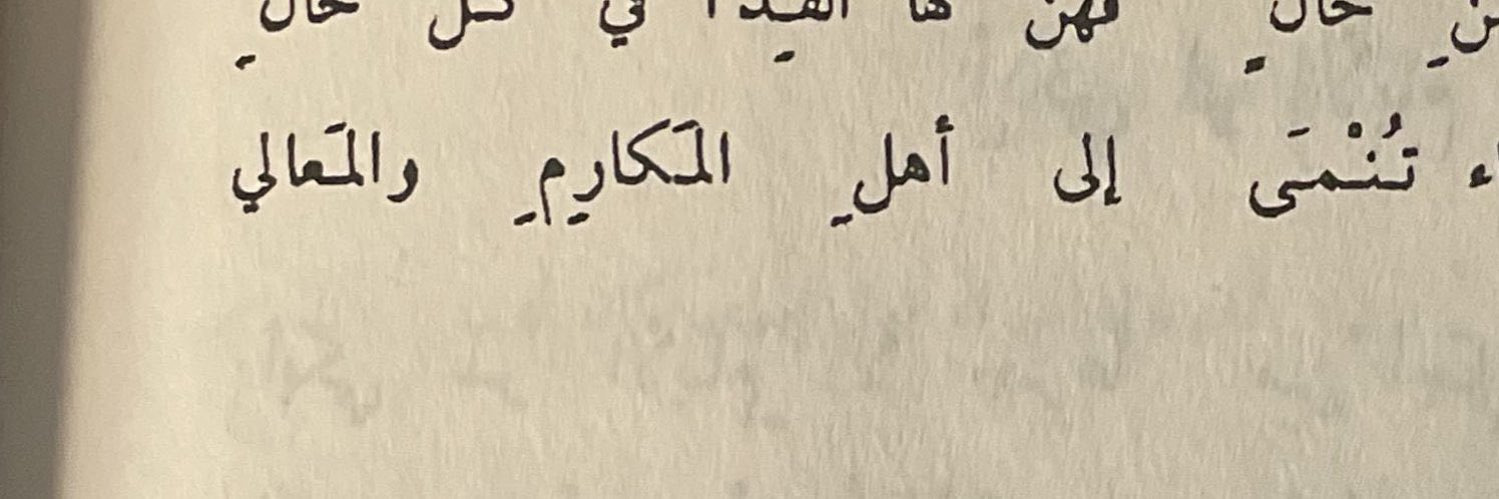 حالٍ فهن لها الفِدا في كل حالٍ
تُنْمَى إلى أهلِ المَكارِمِ والمَعالي